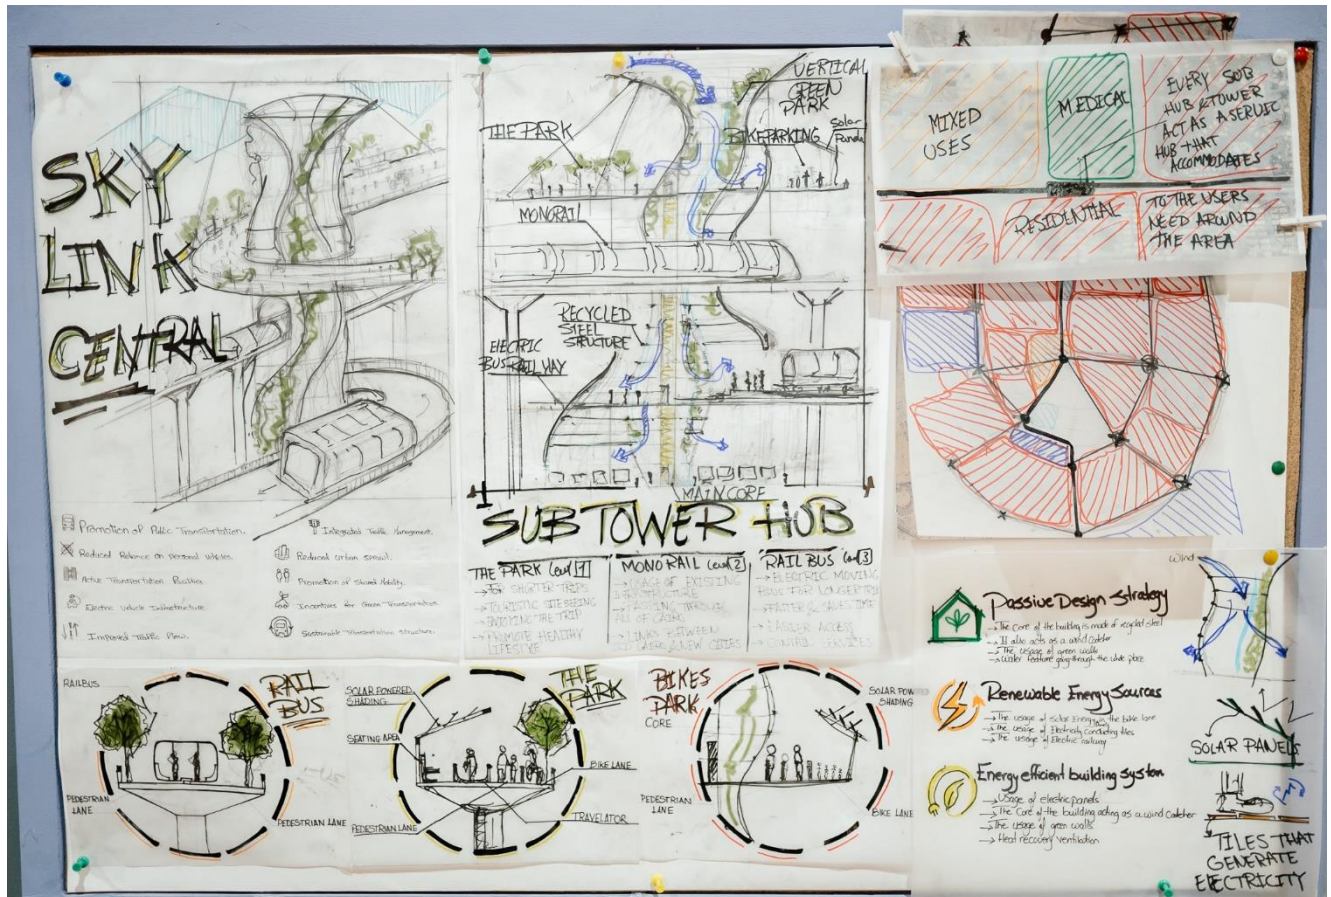 SKY
LINK
CENTRAL
Promotion of Public Transportation.
Reduced Reliance on personal vehicles.
Active Transportation Facilities
Electric Vehicle Infrastructure
Improved Traffic Flow.
Integrated Traffic Management.
Reduced urban sprawl.
Promotion of Shared Mobility.
Incentives for Green Transportation
Sustainable Transportation structure.
VERTICAL
GREEN
PARK
THE PARK
BIKE PARKING
Solar
MONORAIL
RECYCLED
STEEL
STRUCTURE
ELECTRIC
BUS RAILWAY
MAIN CORE
SUB TOWER HUB
THE PARK (level 1)
→ FOR SHORTER TRIPS
→ TOURISTIC SITESEEING
ENJOYING THE TRIP
→ PROMOTE HEALTHY
LIFESTYLE
MONORAIL (level 2)
→ USAGE OF EXISTING
INFRASTRUCTURE
→ PASSING THROUGH
ALL OF CAIRO
→ LINKS BETWEEN
OLD CAIRO & NEW CITIES
RAIL BUS (level 3)
→ ELECTRIC MOVING
BUS FOR LONGER TRIP
→ FASTER & SAVES TIME
→ EASIER ACCESS
→ SERVICES
MIXED
USES
MEDICAL
EVERY SUB
HUB & TOWER
ACT AS A SERVIC
HUB THAT
ACCOMMODATES
RESIDENTIAL
TO THE USERS
NEED AROUND
THE AREA
RAILBUS
RAIL
BUS
PEDESTRIAN
LANE
PEDESTRIAN LANE
THE
PARK
SOLAR POWERED
SHADING
SEATING AREA
BIKE LANE
TRAVELATOR
PEDESTRIAN LANE
BIKES
PARK
CORE
SOLAR POW
SHADING
PEDESTRIAN
LANE
BIKE LANE
Passive Design Strategy
→ The core of the building is made of recycled steel
→ It also acts as a wind catcher
→ The usage of green walls
→ Water feature going through the whole place
Renewable Energy Sources
→ The usage of solar Energy in the bike lane
→ The usage of Electricity conducting tiles
→ The usage of Electric railway
Energy efficient building system
→ Usage of electric panels
→ The Core of the building acting as a wind Catcher
→ The usage of green walls
→ Heat recovery ventilation
Wind
SOLAR PANELS
TILES THAT
GENERATE
ELECTRICITY